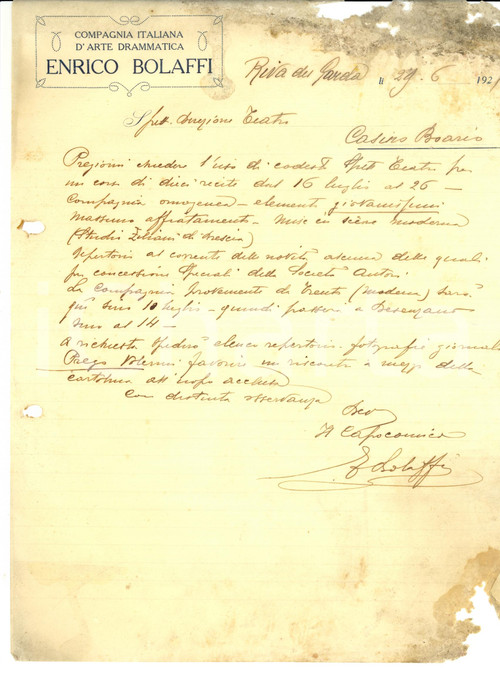 COMPAGNIA ITALIANA
D'ARTE DRAMMATICA
ENRICO BOLAFFI
Riva del Garda li 29. 6 192
Spett. Direzione Teatro
Casino Boario
Pregiomi chiedere l'uso di codesto Spett Teatro per
un corso di dieci recite dal 16 luglio al 26 -
Compagnia omogenea - elementi giovanissimi
massimo affiatamento - mise en scène moderna
(Studio di Brescia)
Repertorio al corrente delle novità alcune delle quali
per concessioni speciali della Società Autori
La Compagnia proveniente da Trento (Modena) sarà
qui sino 10 luglio - quindi passerà a Desenzano
sino al 14 -
A richiesta spedirò elenco repertorio - fotografie giornali
Prego volermi favorire un riscontro a mezzo della
cartolina all'uopo acclusa
Con distinta osservanza
Dev
Il Capocomico
E Bolaffi